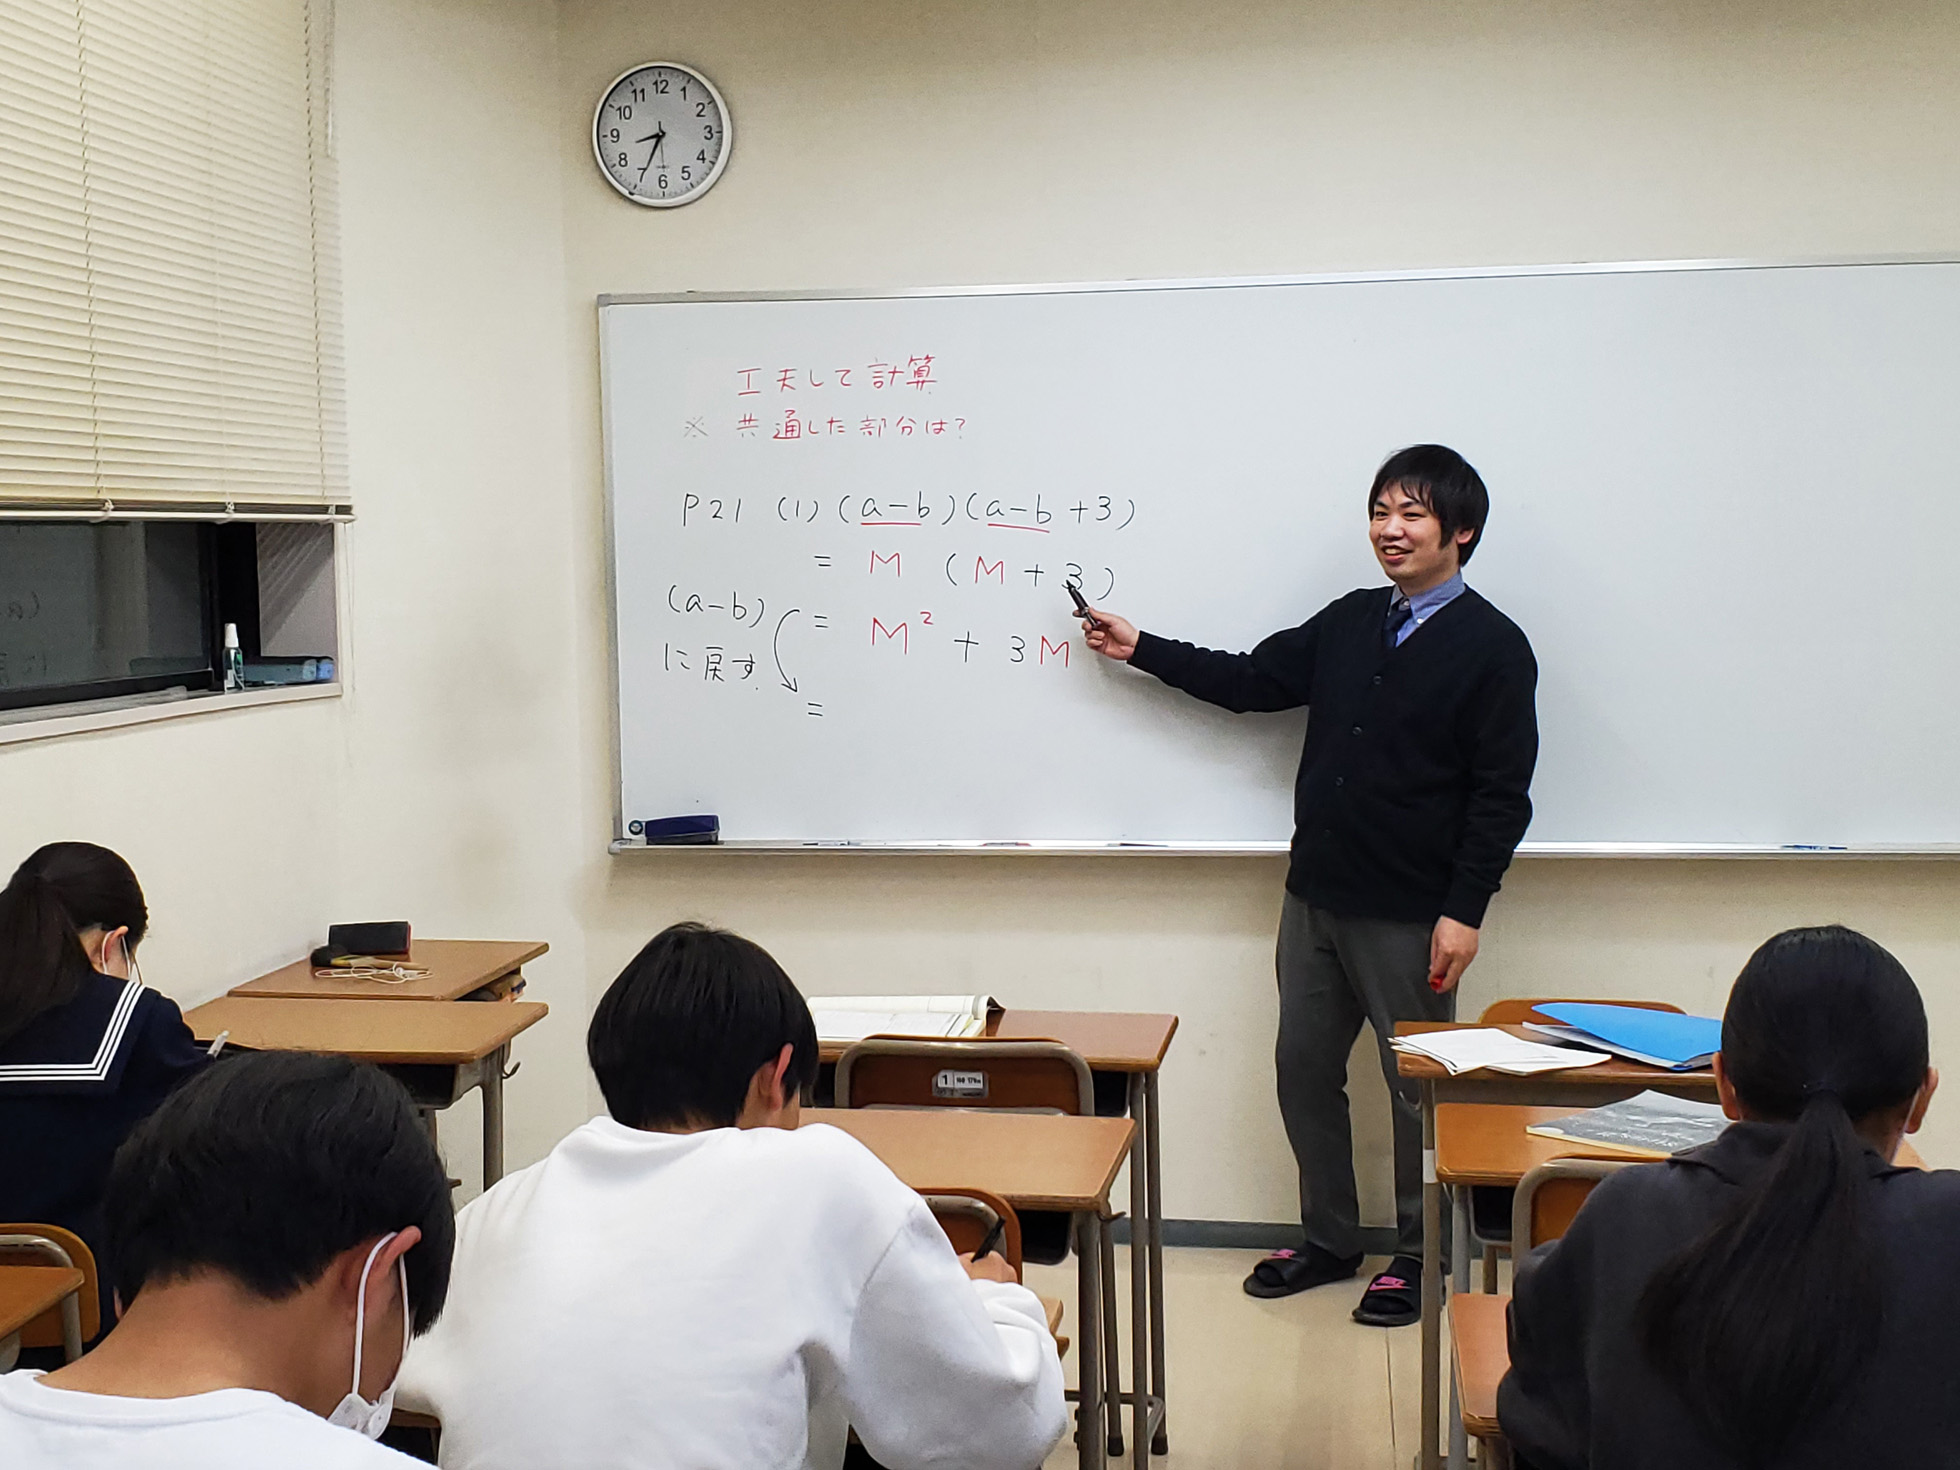 12
11 1
10 2
9 3
8 4
7 5
6
工夫して計算
※ 共通した部分は?
P21 (1) (a-b)(a-b+3)
= M (M+3)
(a-b)
に戻す
= M² + 3M
=
1